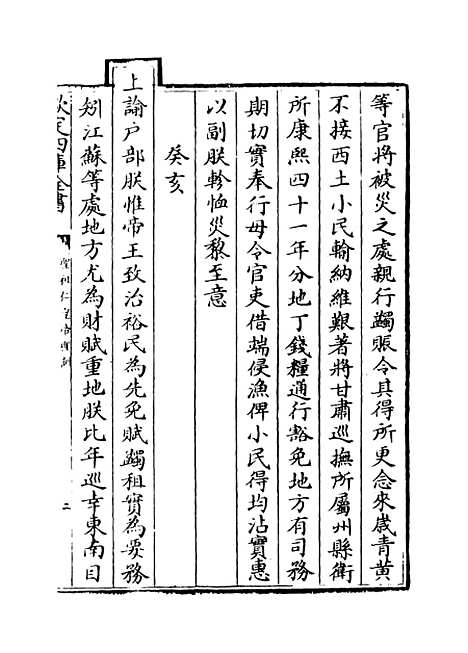 等官將被災之處親行蠲賑令其得所更念來嵗青黄
不接西土小民輸納維艱著將甘肅廵撫所屬州縣衛
所康熙四十一年分地丁錢糧通行豁免地方有司務
期切實奉行毋令官吏借端侵漁俾小民得均沾實惠
以副朕軫恤災黎至意
癸亥
上諭户部朕惟帝王致治裕民為先免賦蠲租實為要務
矧江蘇等處地方尤為財賦重地朕比年廵幸東南目
欽定四庫全書
聖祖仁皇帝聖訓
二